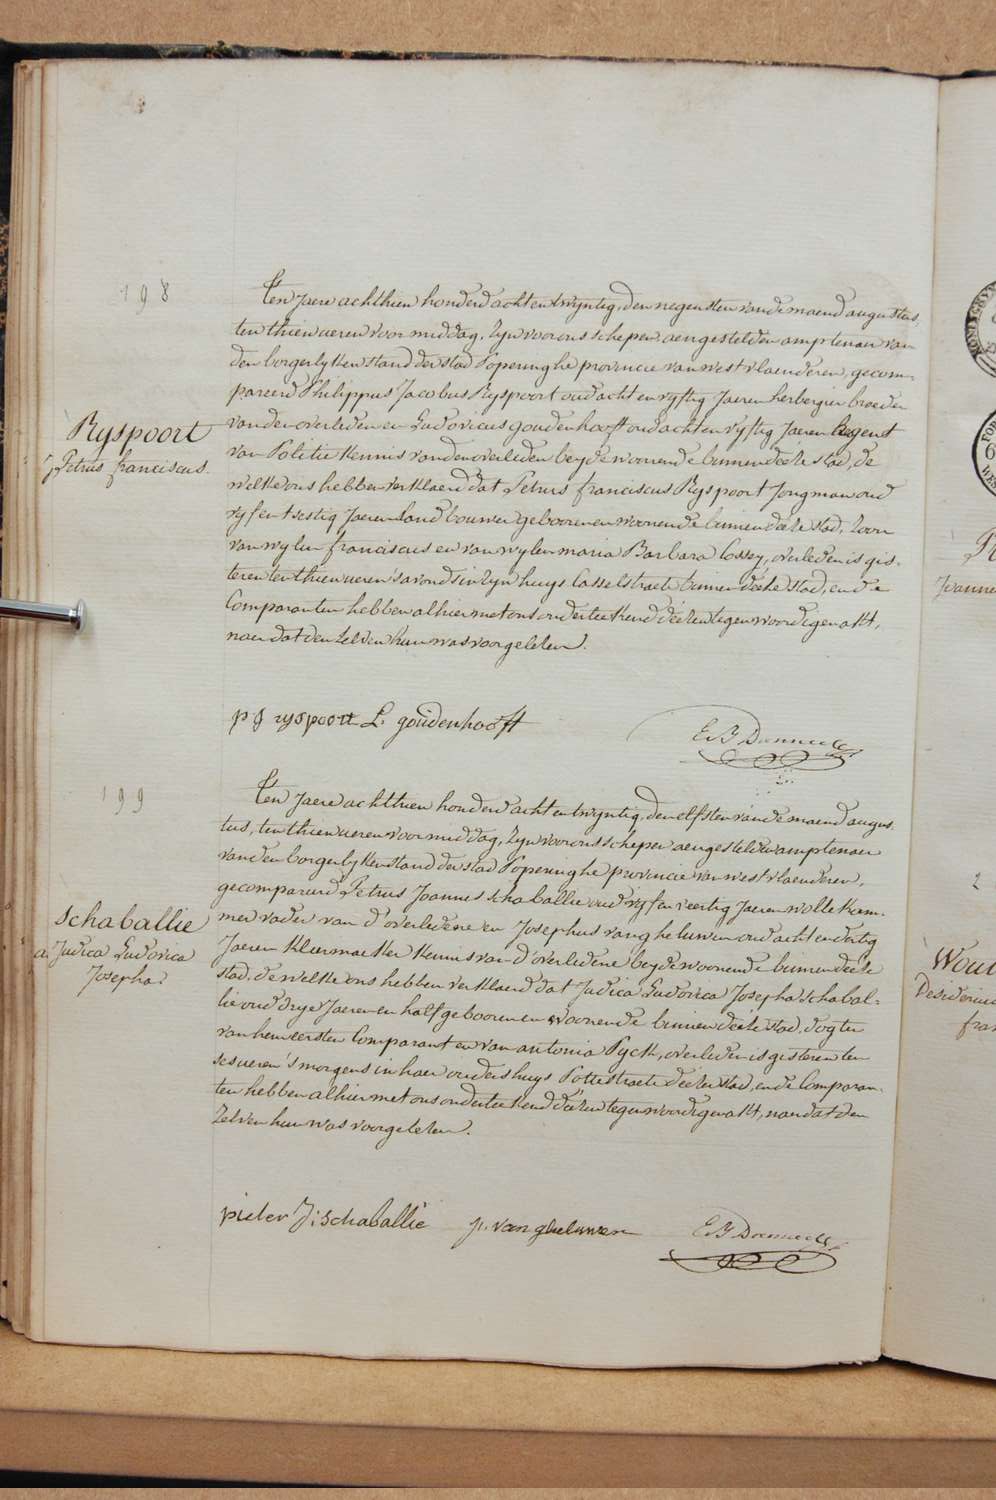 198
Ryspoort
Petrus franciscus.
Ten Jaere achthien honderd acht en twyntig, den negensten van de maend augustus,
ten thien ueren voormiddag, zyn voor ons schepen aengestelden amptenaer van
den borgerlyken stand der stad Poperinghe provincie van westvlaenderen, gecom-
pareerd Philippus Jacobus Ryspoort oud acht en vyftig Jaeren herbergier broeder
van den overleden en Ludovicus goudenhooft oud acht en vyftig Jaeren Agent
van Politie kennis van den overleden beyde woonende binnen deéze stad, de
welke ons hebben verklaerd dat Petrus franciscus Ryspoort Jongman oud
vyf en tsestig Jaeren Landbouwer gebooren en woonende binnen deéze stad, zoon
van wylen franciscus en van wylen maria Barbara Cossey, overleden is gis-
teren ten thien ueren 's avonds in zyn huys Casselstraete binnen deéze stad, en de
Comparanten hebben alhier met ons onderteekend déezen tegenwoordigen akt,
naer dat den zelven hun was voorgelezen.
p J ryspoort L. goudenhooft
199
schaballie
Judica Ludovica
Josepha
Ten Jaere achthien honderd acht en twyntig, den elfsten van de maend augus-
tus, ten thien ueren voormiddag, zyn voor ons schepen aengestelden amptenaer
van den borgerlyken stand der stad Poperinghe provincie van westvlaenderen,
gecompareerd Petrus Joannes schaballie oud vyf en veertig Jaeren wollekam-
mer vader van d'overledene en Josephus vangheluwen oud acht en dertig
Jaeren kleermaeker kennis van d'overledene beyde woonende binnen deéze
stad, de welke ons hebben verklaerd dat Judica Ludovica Josepha schabal-
lie oud drye Jaeren en half gebooren en woonende binnen deéze stad, dogter
van hem eersten Comparant en van antonia Pyck, overleden is gisteren ten
ses ueren 's morgens in haer ouders huys Pottestraete deézer stad, en de Comparan-
ten hebben alhier met ons onderteekend déezen tegenwoordigen akt, naer dat den
zelven hun was voorgelezen.
pieter J: schaballie j. vangheluwen
Joanne
2
Wout
Desideriu
fran